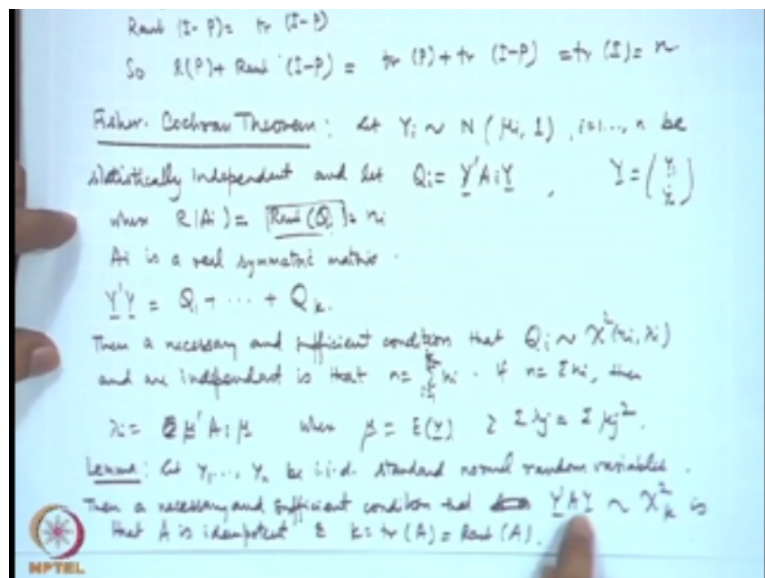 Rank (I-P) = tr (I-P)
So R(P) + Rank (I-P) = tr (P) + tr (I-P) = tr (I) = n
Fisher-Cochran Theorem: Let Yi ~ N (μi, 1), i=1,..., n be
statistically independent and let Qi = Y'AiY, Y = (Y1 ⋮ Yn)
where R(Ai) = Rank (Qi) = ni
Ai is a real symmetric matrix.
Y'Y = Q1 + ... + Qk.
Then a necessary and sufficient condition that Qi ~ χ²(ni, λi)
and are independent is that n = Σ_{i=1}^{k} ni. If n = Σni, then
λi = μ'Aiμ where μ = E(Y) & Σλj = Σμj².
Lemma: Let Y1,..., Yn be i.i.d. standard normal random variables.
Then a necessary and sufficient condition that Y'AY ~ χ²k is
that A is idempotent & k = tr (A) = Rank (A).
NPTEL